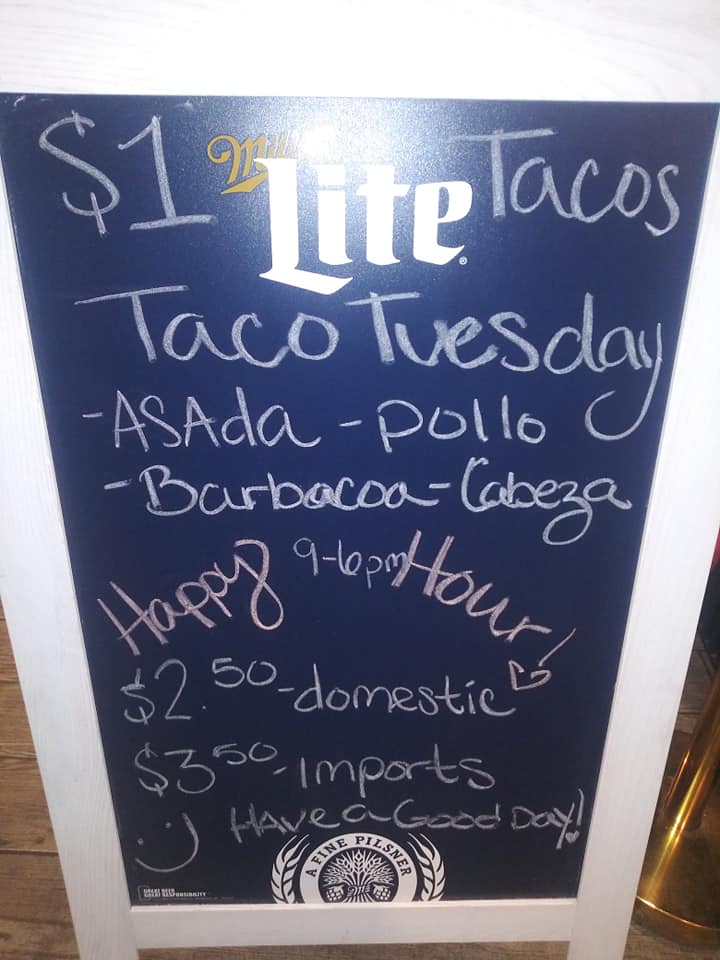 $1 Miller Lite Tacos
Taco Tuesday
-ASAda -pollo
-Barbacoa -Cabeza
Happy 9-6pm Hour!
$2.50-domestic
$3.50-imports
:) HAve a Good Day!
A FINE PILSNER
GREAT BEER
GREAT RESPONSIBILITY